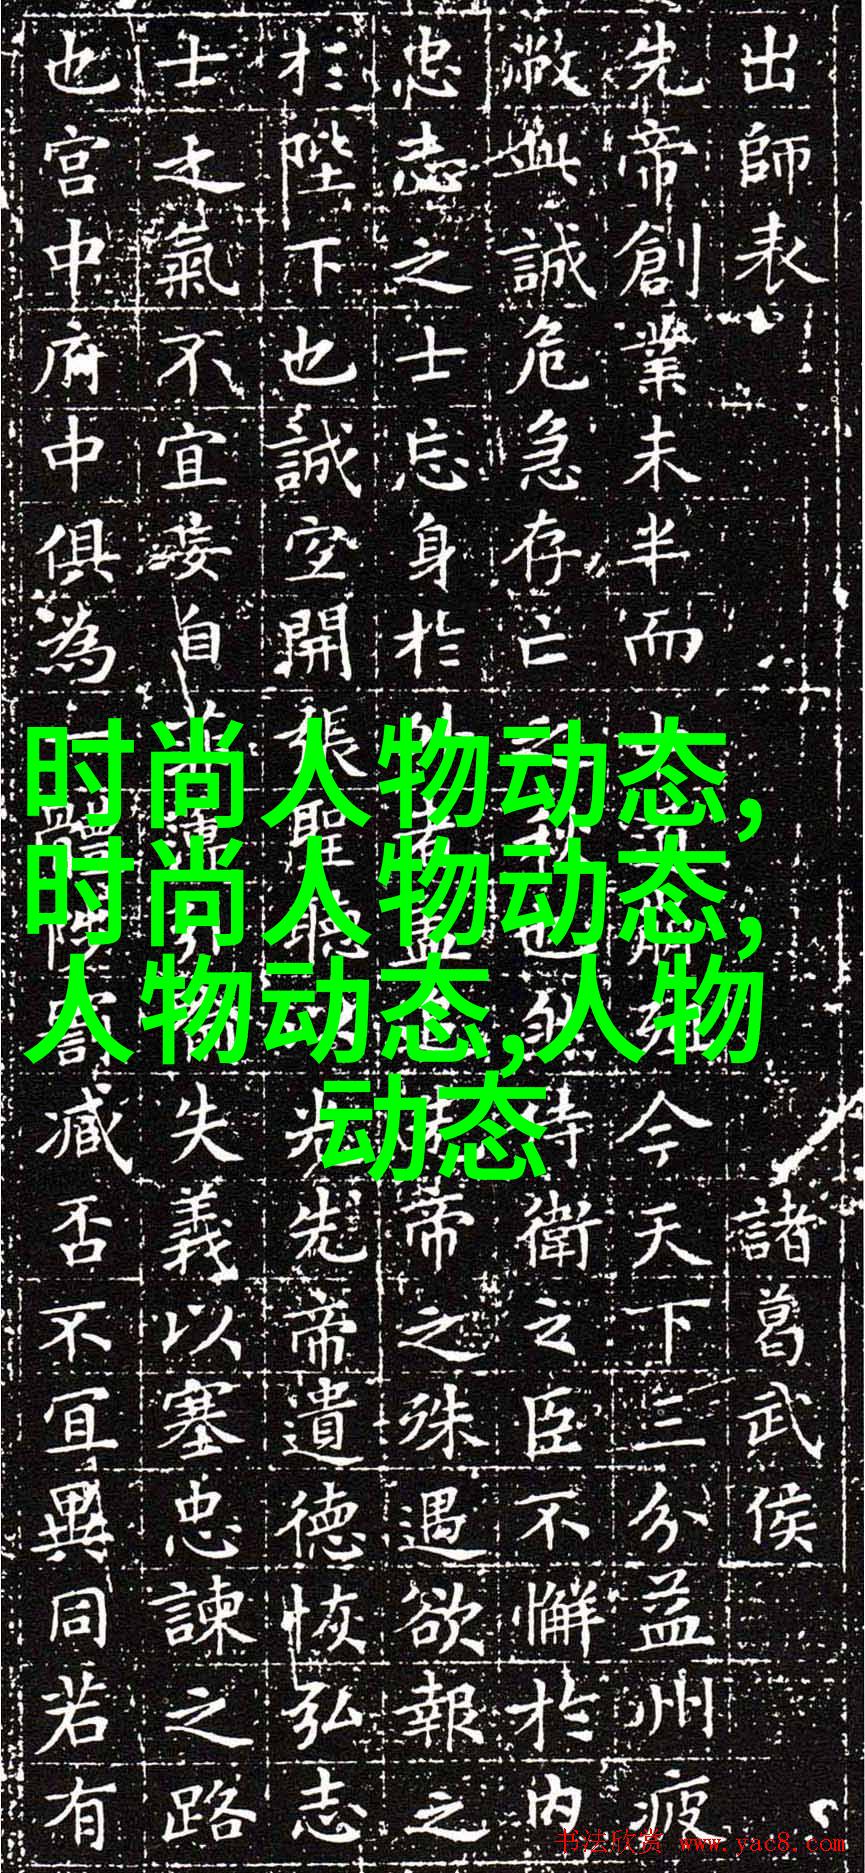 出師表 諸葛武侯
先帝創業未半而今天下三分益州疲
敝此誠危急存亡之秋也然侍衛之臣不懈於內
忠志之士忘身於帝之殊遇欲報之
於陛下也誠空開張聖聽光先帝遺德恢弘志
士之氣不宜妄自薄失義以塞忠諫之路
也宮中府中俱為一體陟罰臧否不宜異同若有
时尚人物动态,
时尚人物动态,
人物动态,人物
动态
书法欣赏 www.yac8.com